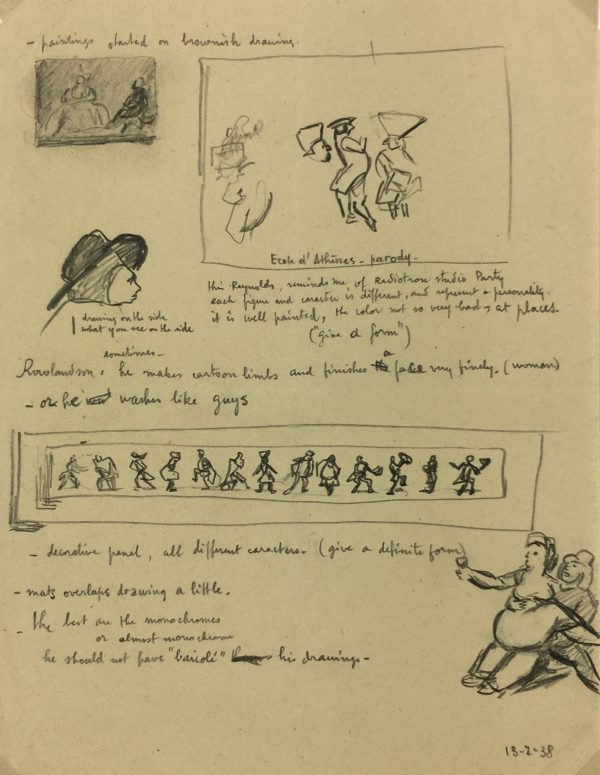 - paintings started on brownish drawing.
Ecole d'Athènes - parody -
this Reynolds, reminds me of Radiotron studio Party
each figure and caracter is different, and represent a personality.
it is well painted, the color not so very bad, at places.
("give a form")
drawing on the side
what you see on the side
sometimes -
Rowlandson. he makes cartoon limbs and finishes a face very finely. (woman)
- or he washes like guys
- decorative panel, all different caracters - (give a definite form)
- mats overlaps drawing a little.
- the best are the monochromes
or almost monochrome
he should not have "bariolé" his drawings -
13-2-38